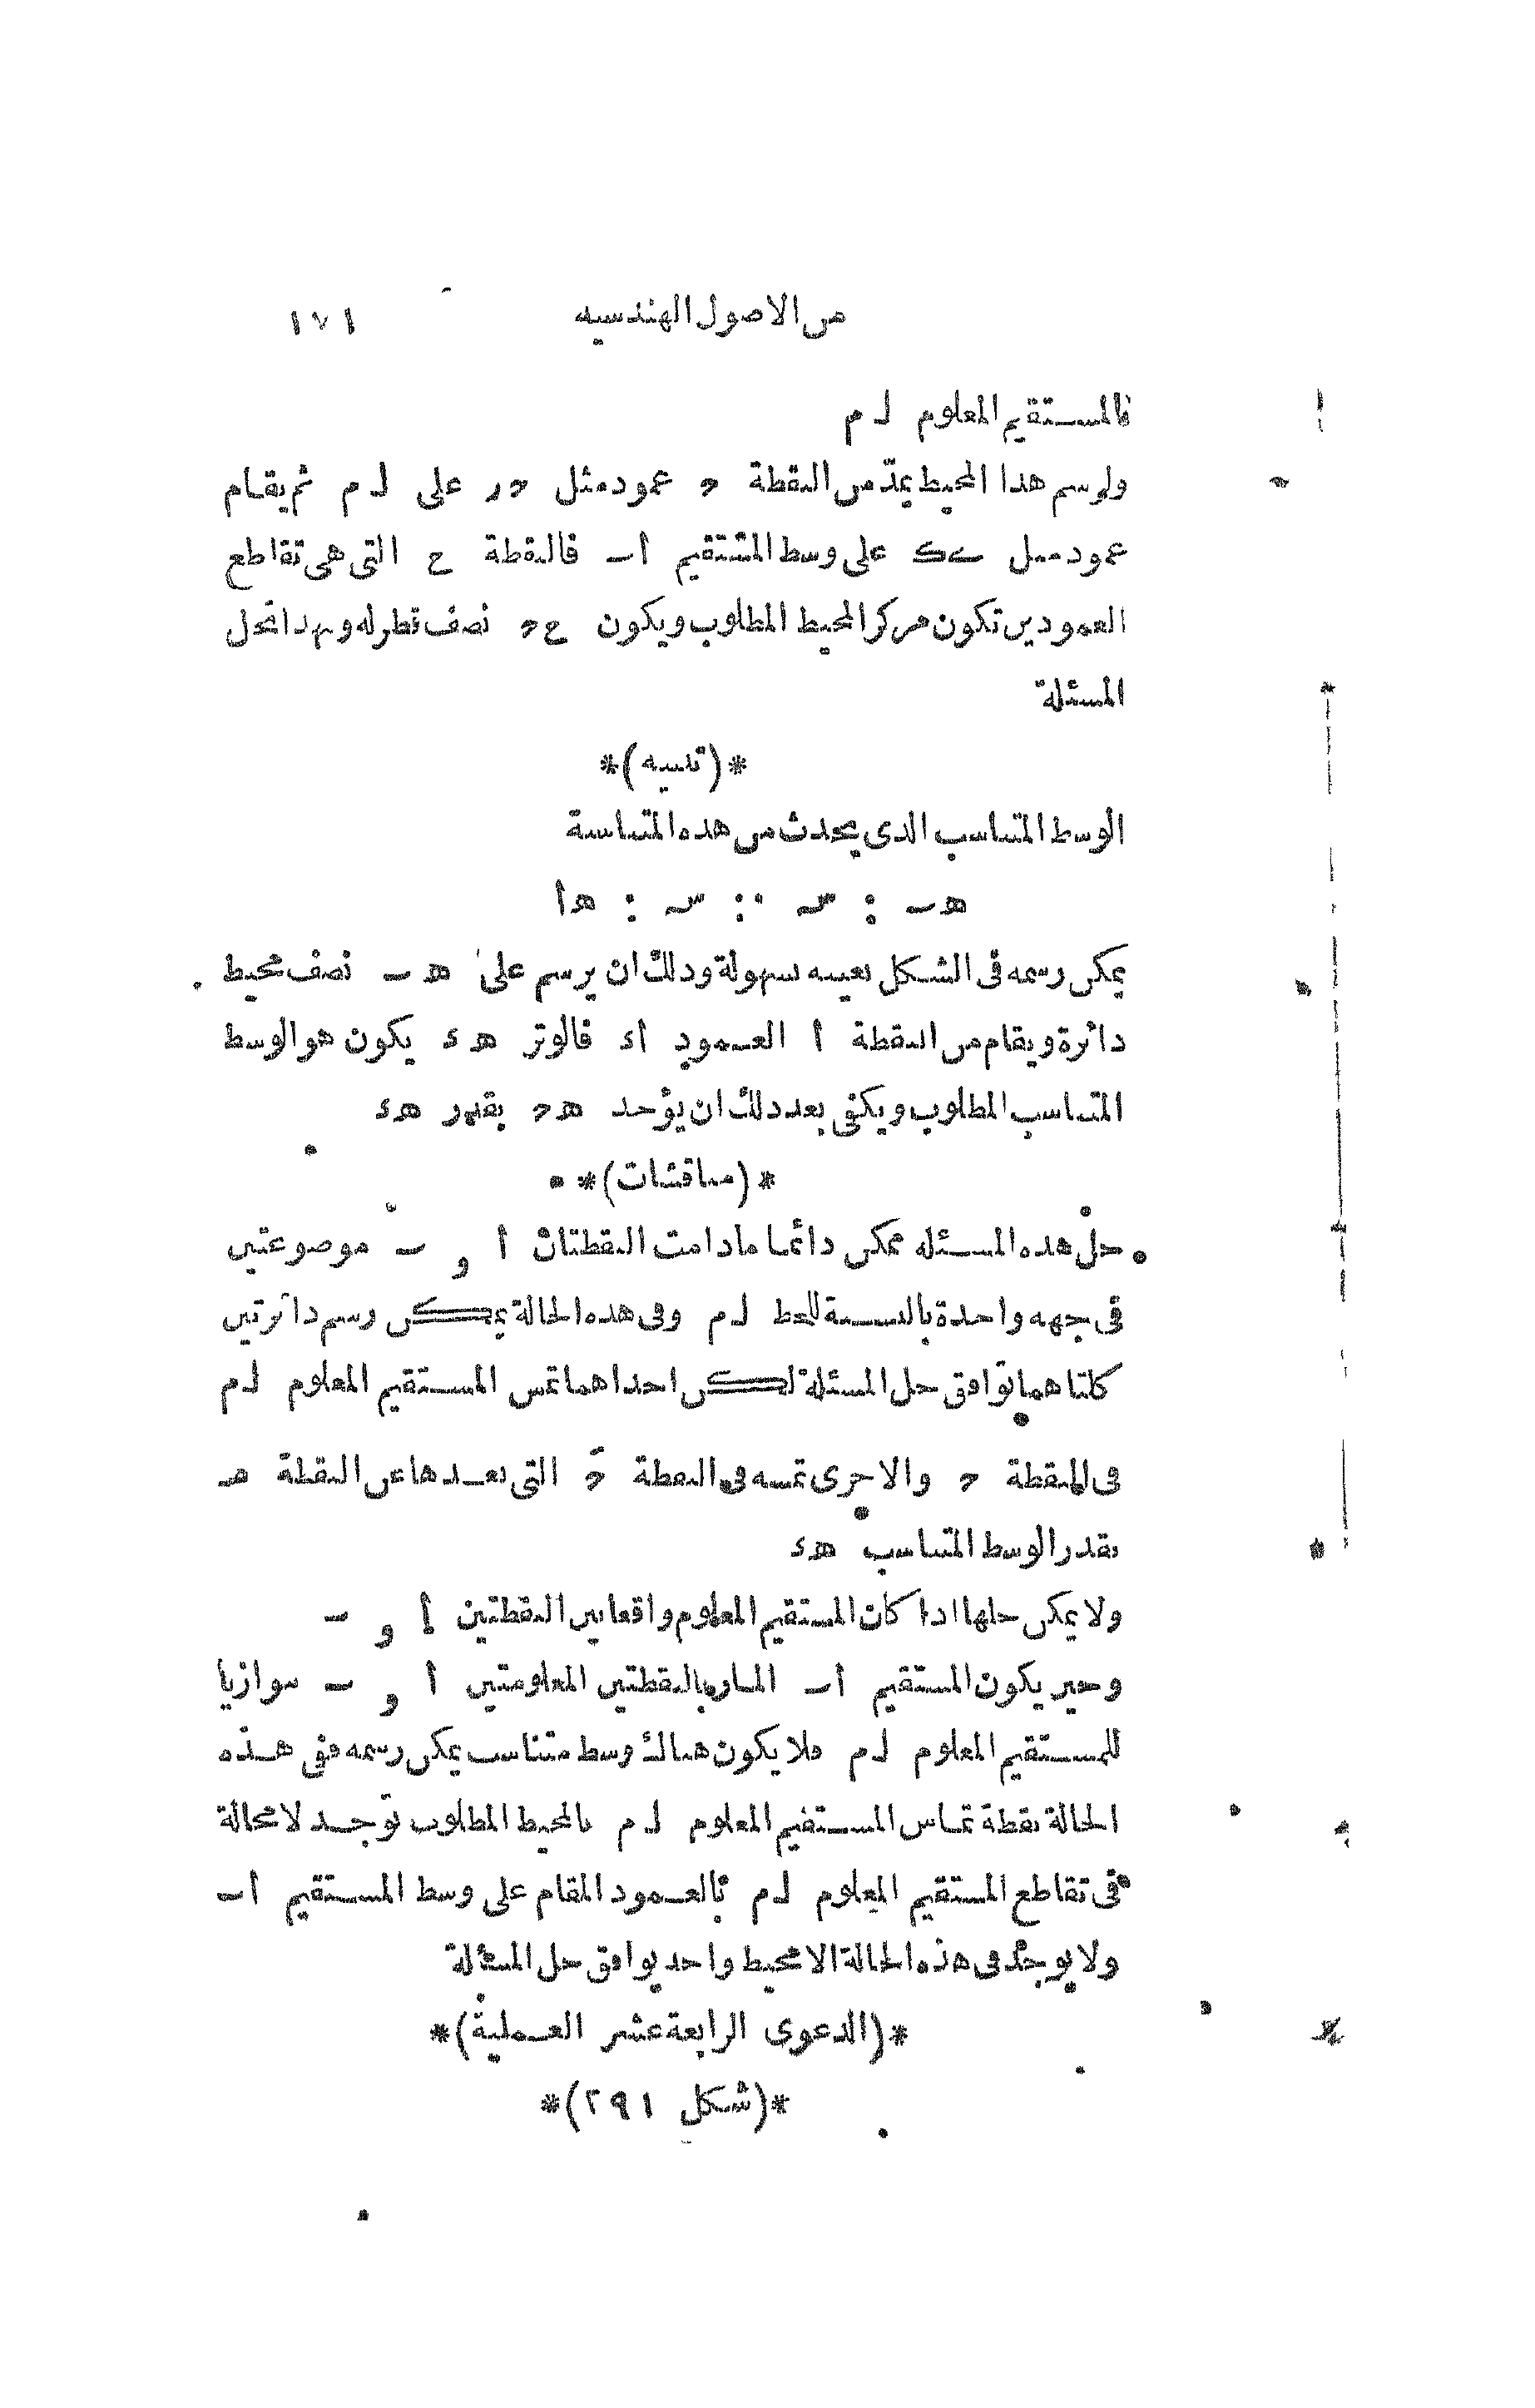 من الاصول الهندسيه ١٧١
فالمستقيم المعلوم لـ م
ولرسم هذا المحيط يمدّ من النقطة د عمود مثل در على لـ م ثم يقام
عمود مثل ىك على وسط المستقيم أب فالنقطة ح التى هى تقاطع
العمودين تكون مركز المحيط المطلوب ويكون حد نصف قطر له وبهذا تنحل
المسئلة
*(تنبيه)*
الوسط المتناسب الذى يحدث من هذه المتناسبة
هـ ب : سـ :: سـ : هـ أ
يمكن رسمه فى الشكل بعينه بسهولة وذلك ان يرسم على هـ ب نصف محيط
دائرة ويقام من النقطة أ العمود أء فالوتر هـ ء يكون هو الوسط
المتناسب المطلوب ويكفى بعد ذلك ان يؤخذ هـ د بقدر هـ ء
*(مناقشات)*
حل هذه المسئله ممكن دائما مادامت النقطتان أ و ب موضوعتين
فى جهه واحدة بالنسبة للخط لـ م وفى هذه الحالة يمكن رسم دائرتين
كلتاهما توافق حل المسئلة لكن احداهما تمس المستقيم المعلوم لـ م
فى النقطة د والاخرى تمسه فى النقطة دَ التى بعدها عن النقطة هـ
بقدر الوسط المتناسب هـ ء
ولا يمكن حلها اذا كان المستقيم المعلوم واقعا بين النقطتين أ و ب
وحين يكون المستقيم أب المار بالنقطتين المعلومتين أ و ب موازيا
للمستقيم المعلوم لـ م فلا يكون هناك وسط متناسب يمكن رسمه ففى هذه
الحالة نقطة تماس المستقيم المعلوم لـ م بالمحيط المطلوب توجد لا محالة
فى تقاطع المستقيم المعلوم لـ م بالعمود المقام على وسط المستقيم أب
ولا يوجد فى هذه الحالة الا محيط واحد يوافق حل المسئلة
*(الدعوى الرابعة عشر العملية)*
*(شكل ٢٩١)*